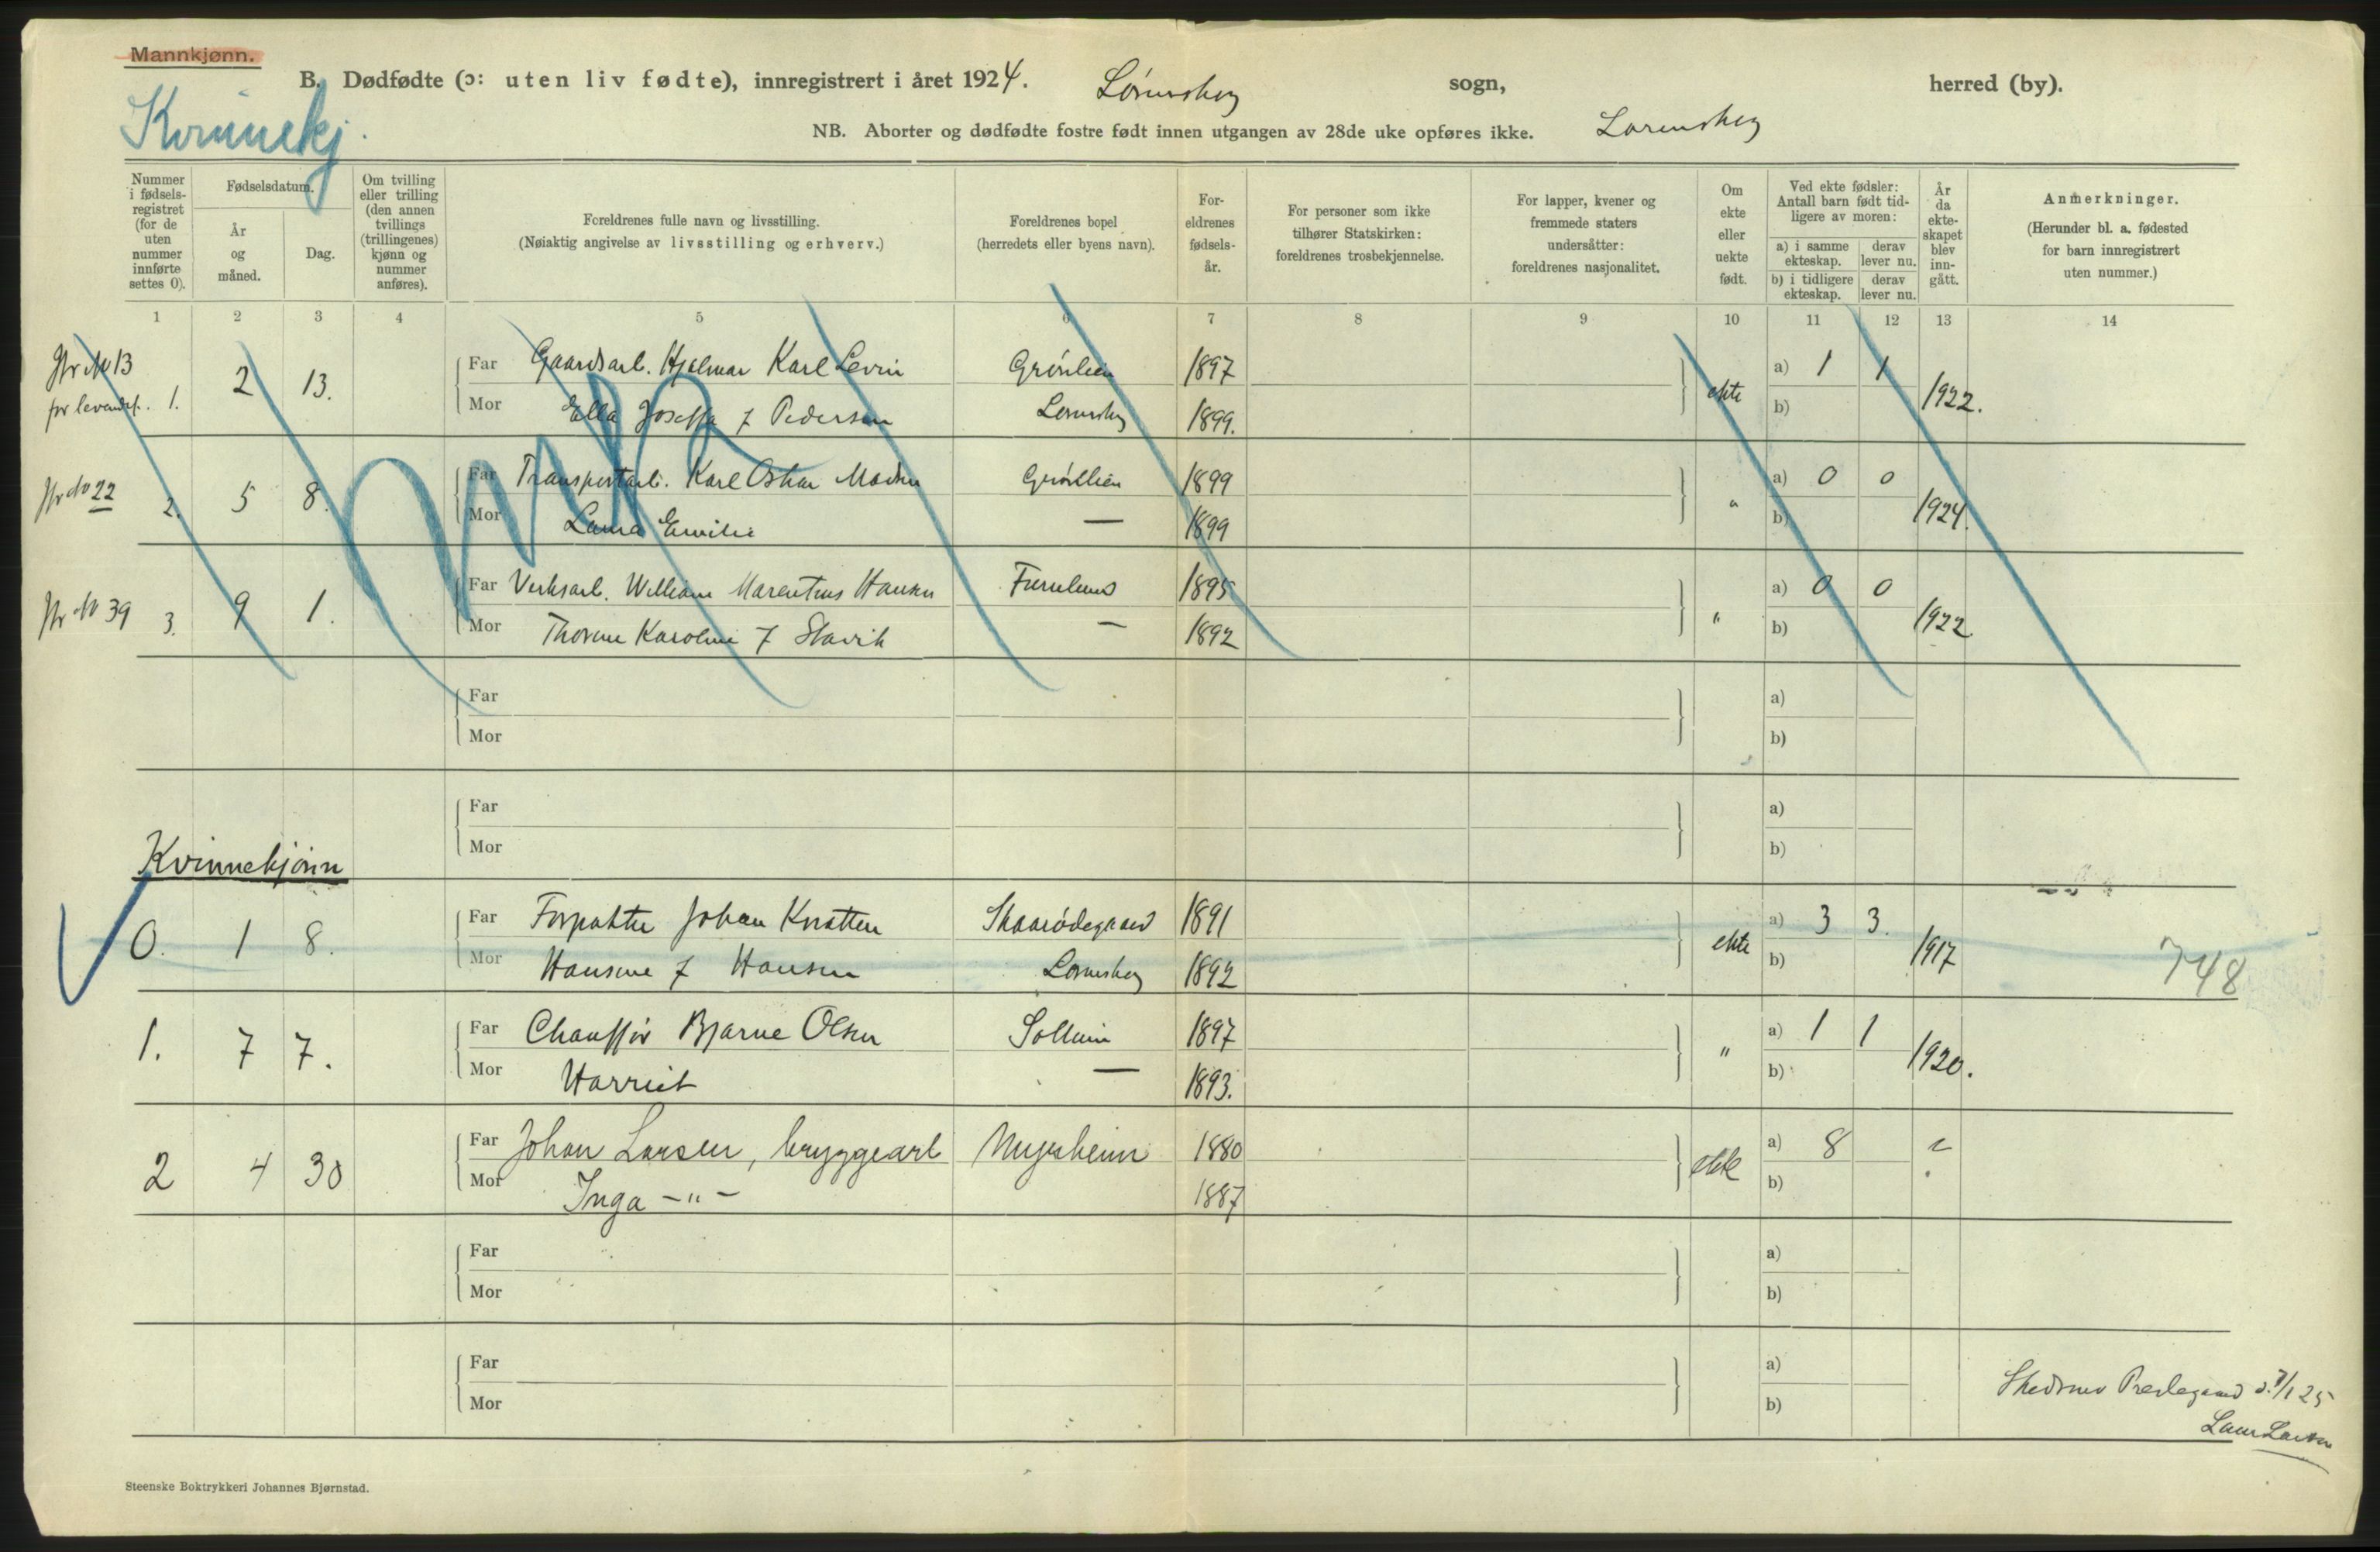 Mannkjønn.
B. Dødfødte (ɔ: uten liv fødte), innregistrert i året 1924. Lørenskog sogn, herred (by).
Kvinnekj.
NB. Aborter og dødfødte fostre født innen utgangen av 28de uke opføres ikke. Lørenskog
Nummer i fødsels-registret (for de uten nummer innførte settes 0).
Fødselsdatum.
År og måned.
Dag.
Om tvilling eller trilling (den annen tvillings (trillingenes) kjønn og nummer anføres).
Foreldrenes fulle navn og livsstilling.
(Nøiaktig angivelse av livsstilling og erhverv.)
Foreldrenes bopel
(herredets eller byens navn).
For-eldrenes fødsels-år.
For personer som ikke tilhører Statskirken: foreldrenes trosbekjennelse.
For lapper, kvener og fremmede staters undersåtter: foreldrenes nasjonalitet.
Om ekte eller uekte født.
Ved ekte fødsler: Antall barn født tid-ligere av moren:
a) i samme ekteskap.
derav lever nu.
b) i tidligere ekteskap.
derav lever nu.
År da ekte-skapet blev inn-gått.
Anmerkninger.
(Herunder bl. a. fødested for barn innregistrert uten nummer.)
1 2 3 4 5 6 7 8 9 10 11 12 13 14
No 13 Far Gaardsarb. Hjalmar Karl Levin Grønlien 1897 a) 1 1
1. 2 13. ekte 1922.
Mor Ella Joseffa f Pedersen Lørenskog 1899. b)
No 22 Far Transportarb. Karl Oskar Madsen Grønlien 1899 a) 0 0
2. 5 8. " 1924.
Mor Laura Emilie — 1899 b)
No 39 Far Verksarb. William Marentius Hansen 1895 a) 0 0
3. 9 1. " 1922.
Mor Karoline f Slavik — 1892 b)
Far a)
Mor b)
Far a)
Mor b)
Kvinnekjønn
Far Forpakter Johan Knatten Skaarødegaard 1891 a) 3 3.
0. 1 8. ekte 1917 748
Mor Hansine f Hansen Lørenskog 1892 b)
Far Chauffør Bjarne Olsen Solheim 1897 a) 1 1
1. 7 7. " 1920.
Mor Harriet — 1893. b)
Far Johan Larsen, bryggearb Myrsheim 1880 a) 8
2 4 30 ekte
Mor Inga —"— 1887 b)
Far a)
Mor b)
Far a)
Mor b)
Skedsmo Prestegaard
Steenske Boktrykkeri Johannes Bjørnstad.